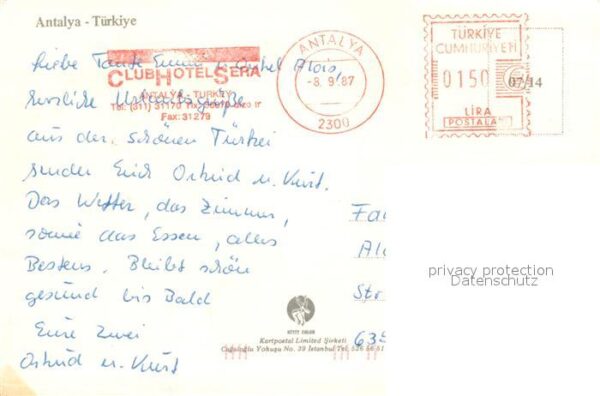 Antalya - Türkiye
Liebe Tante Emmi u. Onkel Alois,
herzliche Urlaubsgrüße
aus der schönen Türkei
senden Euch Ostrud u. Kurt.
Das Wetter, das Zimmer,
sowie das Essen, alles
Bestens. Bleibt schön
gesund bis Bald
Eure Zwei
Ostrud u. Kurt
CLUB HOTEL SERA
ANTALYA - TURKEY
Tel: (311) 31170
Fax: 31279
ANTALYA
-8.9.87
2300
TÜRKİYE
CUMHURİYETİ
0150
LİRA
POSTALARI
07/14
Fa
Al
Str
635
privacy protection
Datenschutz
Kartpostal Limited Şirketi
Cağaloğlu Yokuşu No. 39 İstanbul Tel: 526 66 61